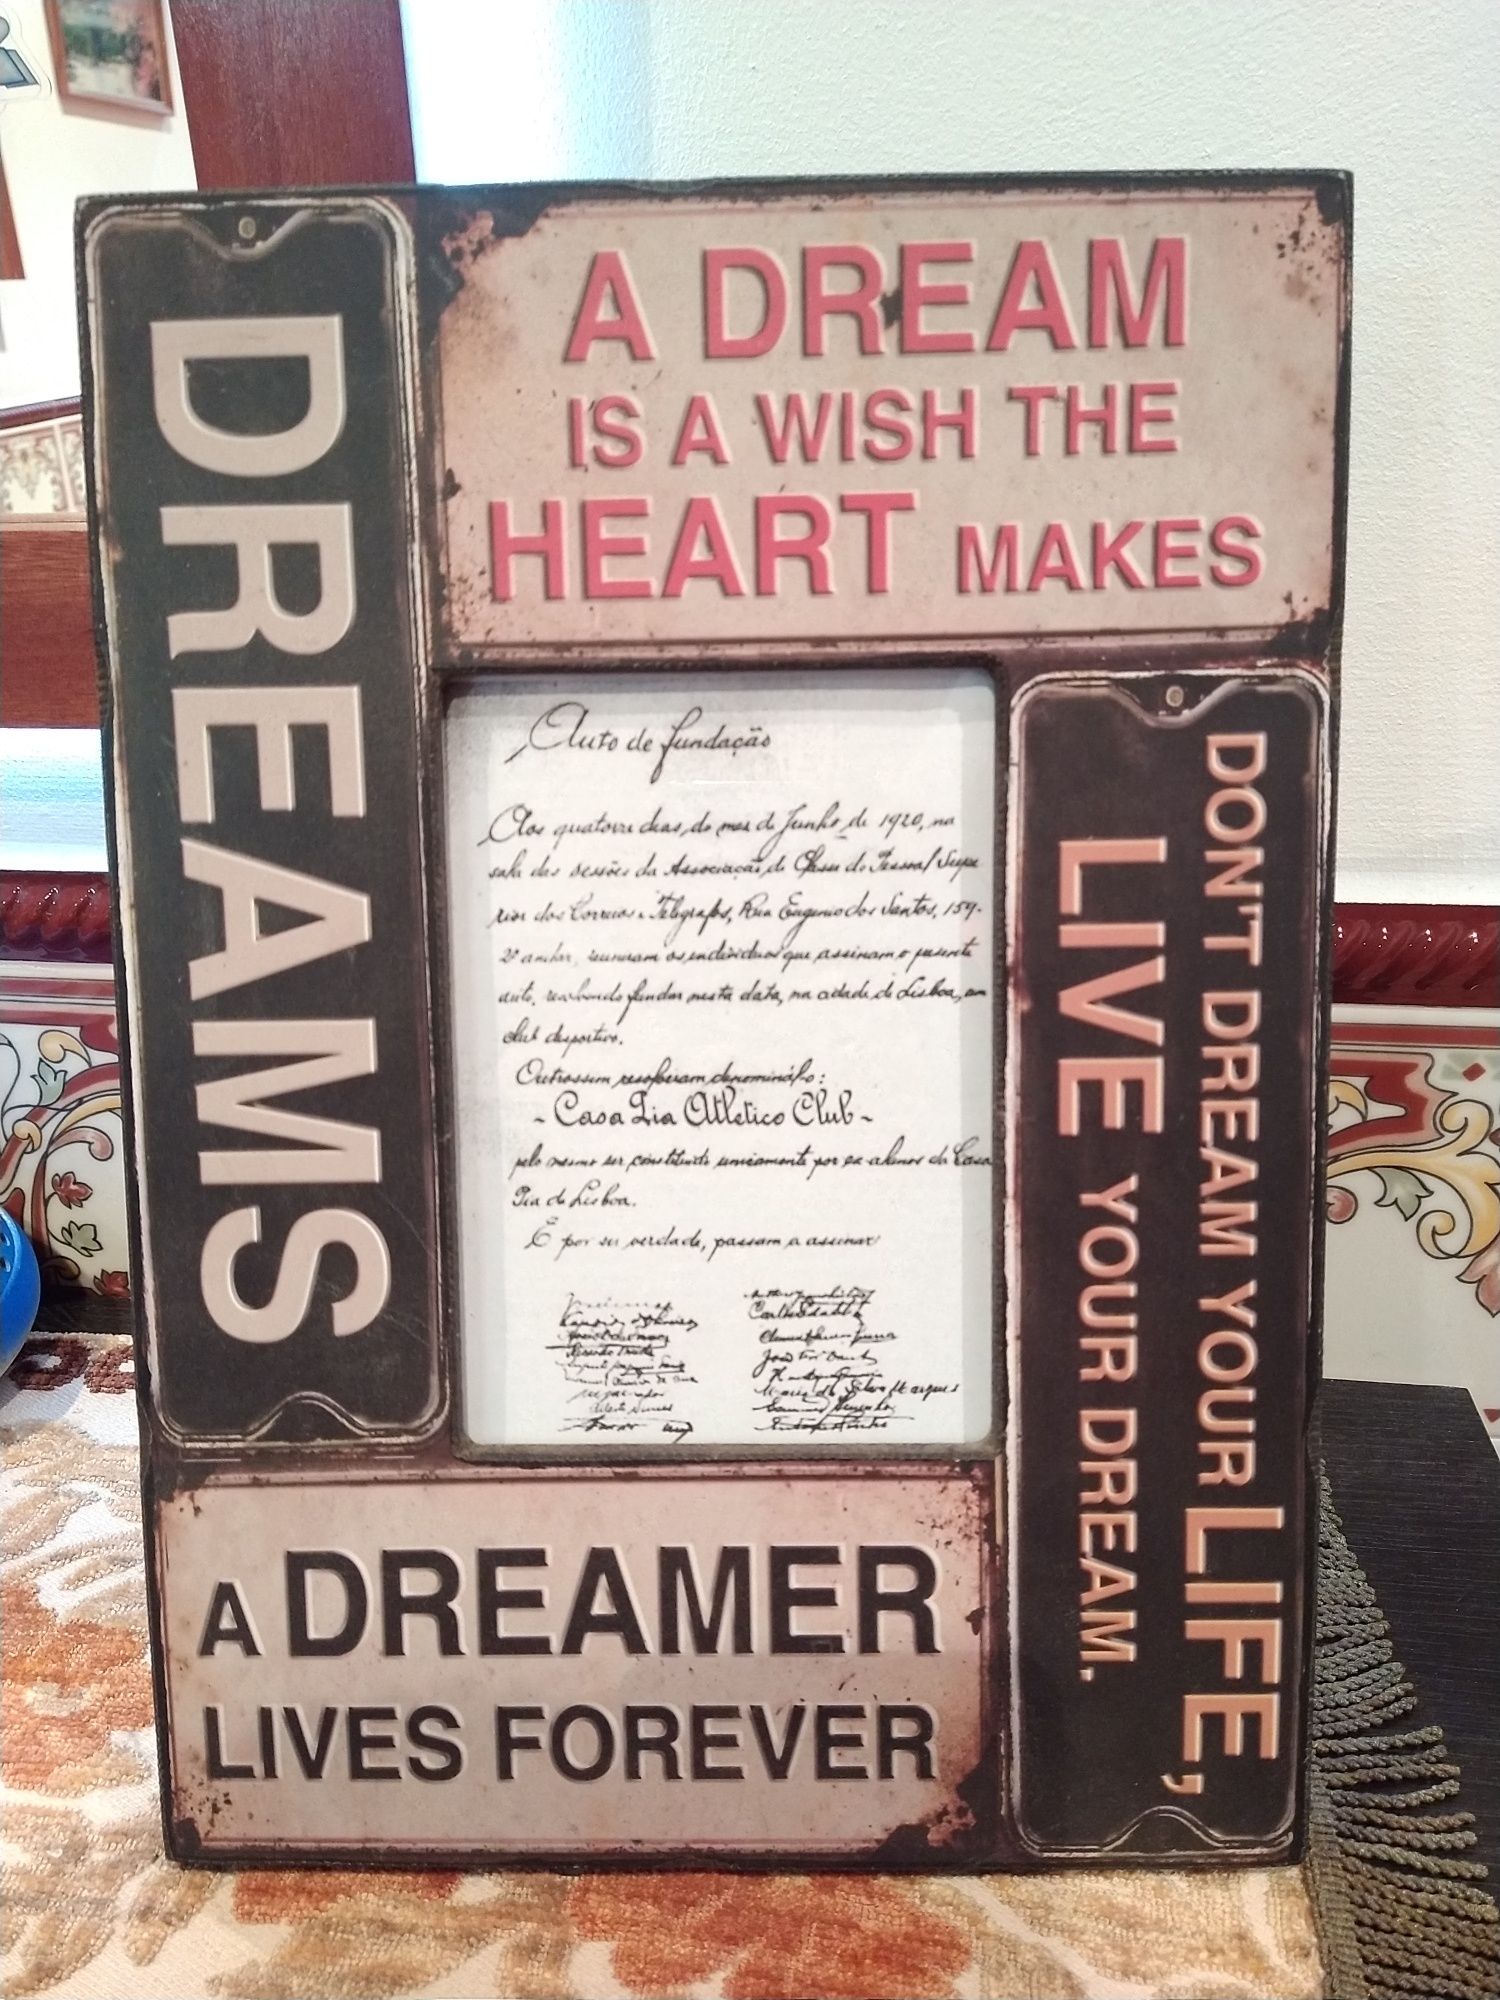 DREAMS
A DREAM
IS A WISH THE
HEART MAKES
DON'T DREAM YOUR LIFE,
LIVE YOUR DREAM.
Auto de fundação
Aos quatorze dias, do mes de Junho de 1920, na
sala das sessões da Associação de Classe do Pessoal Supe
rior dos Correios e Telegrafos, Rua Eugenio dos Santos, 159-
2º andar, reuniram os individuos que assinam o presente
auto, resolvendo fundar nesta data, na cidade de Lisboa, um
club desportivo.
Outrossim resolveram denominál-o:
- Casa Pia Atletico Club -
pelo mesmo ser constituido unicamente por ex-alunos da Casa
Pia de Lisboa.
E por ser verdade, passam a assinar
A DREAMER
LIVES FOREVER